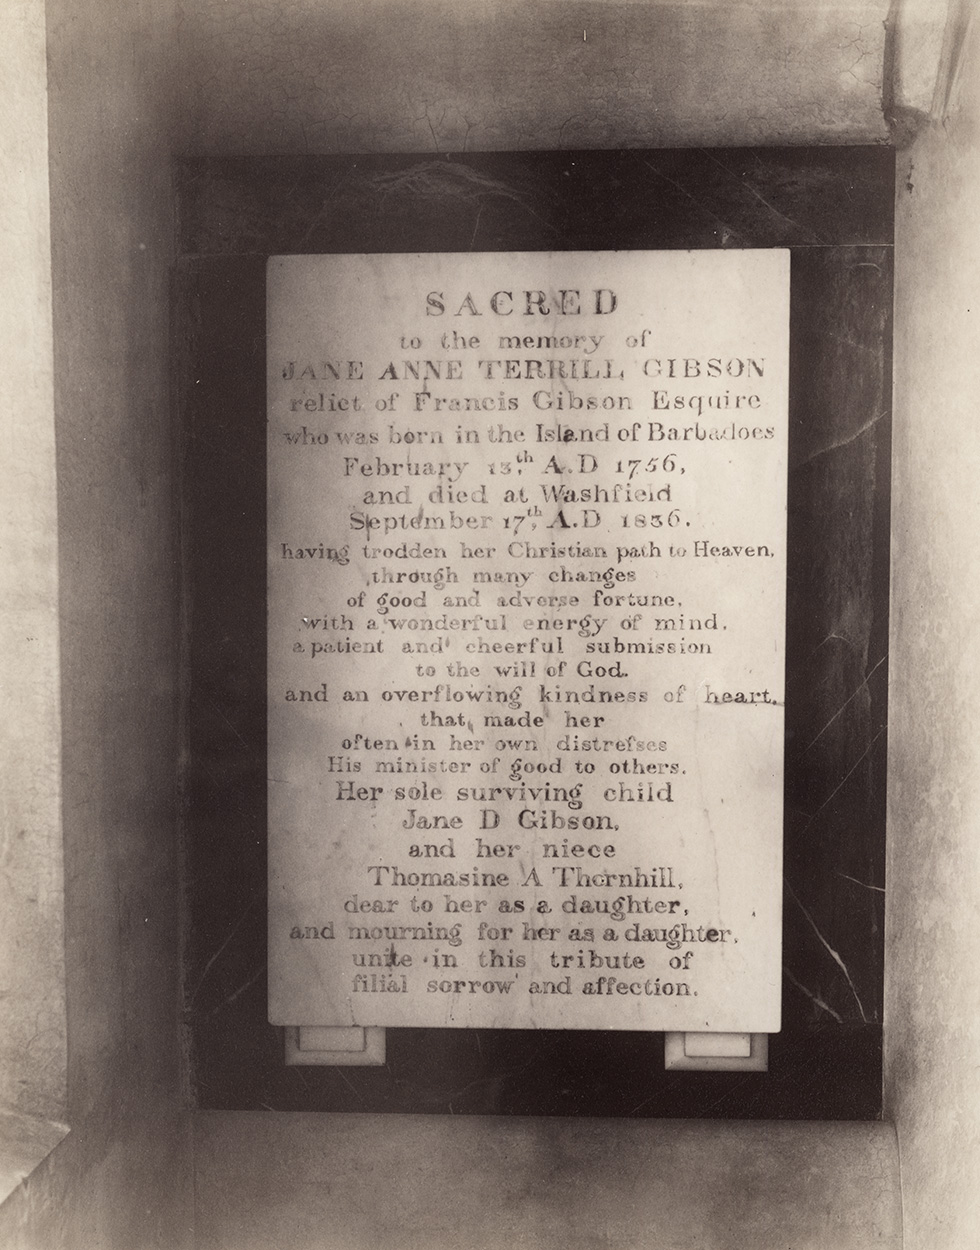 SACRED
to the memory of
JANE ANNE TERRILL GIBSON
relict of Francis Gibson Esquire
who was born in the Island of Barbadoes
February 13th, A.D 1756,
and died at Washfield
September 17th, A.D 1836.
having trodden her Christian path to Heaven,
through many changes
of good and adverse fortune,
with a wonderful energy of mind,
a patient and cheerful submission
to the will of God.
and an overflowing kindness of heart,
that, made her
often in her own distreſses
His minister of good to others.
Her sole surviving child
Jane D Gibson,
and her niece
Thomasine A Thornhill,
dear to her as a daughter,
and mourning for her as a daughter,
unite in this tribute of
filial sorrow and affection.